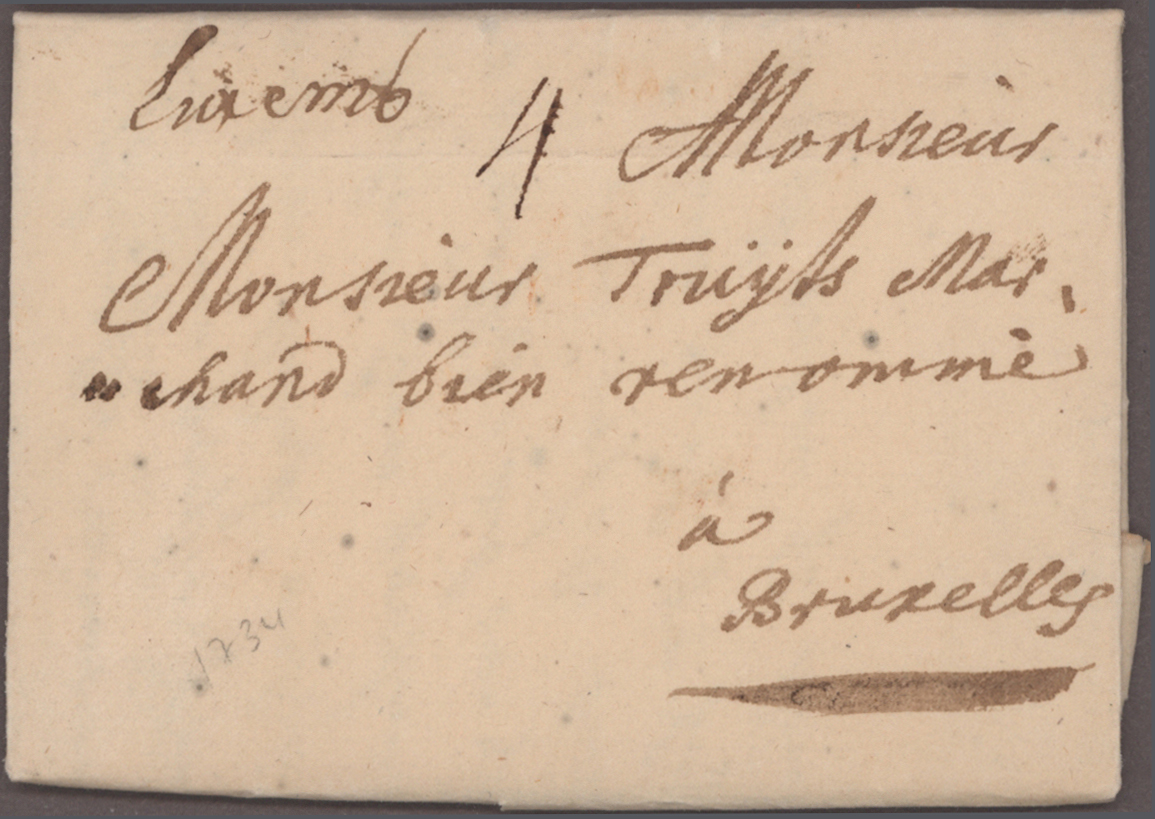 Luxemb
4 Monsieur
Monsieur Truÿts Mar,
"chand bien renommè
à
Bruxelles
1734